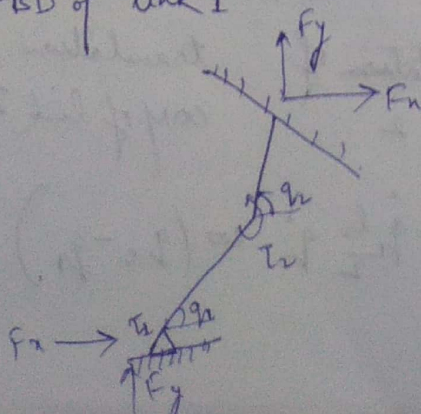 BD of link 1
Fy
Fx
q2
τ2
τ1 q1
Fx
Fy